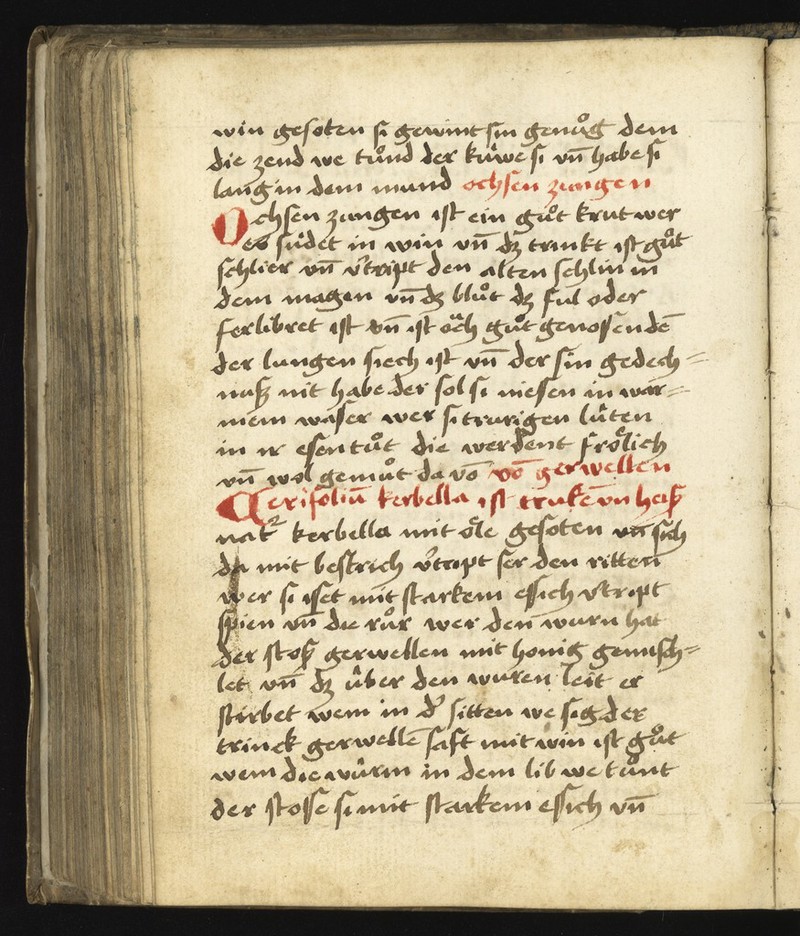 win gesoten si gewint sin genuͦg dem
die zend we tuͦnd der kuͥwe si vn̄ habe si
lang in dem mund ochsen zungen
Ochsen zungen ist ein guͦt krut wer
es suͥdet in win vn̄ dz trinkt ist guͦt
schlier vn̄ v̓tript den alten schlim in
dem magen vn̄ dz bluͦt dz ful oder
ferlibret ist vn̄ ist oͮch guͦt genossen dē
der lungen siech ist vn̄ der sin gedech=
nuß nit habe der sol si niesen in war=
mem waser wer si trurigen luͥten
in ir essen tuͦt die werdent froͤlich
vn̄ wol gemuͦt da vō vō gerwellen
Cerifoliū kerbella ist trukē vn heiß
nat² kerbella mit oͤle gesoten vn̄ sich
da mit bestrich v̓tript ser den ritten
wer si isset mit starkem essich v̓tript
spien vn̄ die ruͦr wer den wurm hat
der stoß gerwellen mit honig gemisch=
let vn̄ dz uͥber den wuren leit er
stirbet wem in d̓ sitten we sig der
trinck gerwellē saft mit win ist guͦt
wem die wuͥrm in dem lib we tuͦnt
der stosse si mit starkem essich vn̄